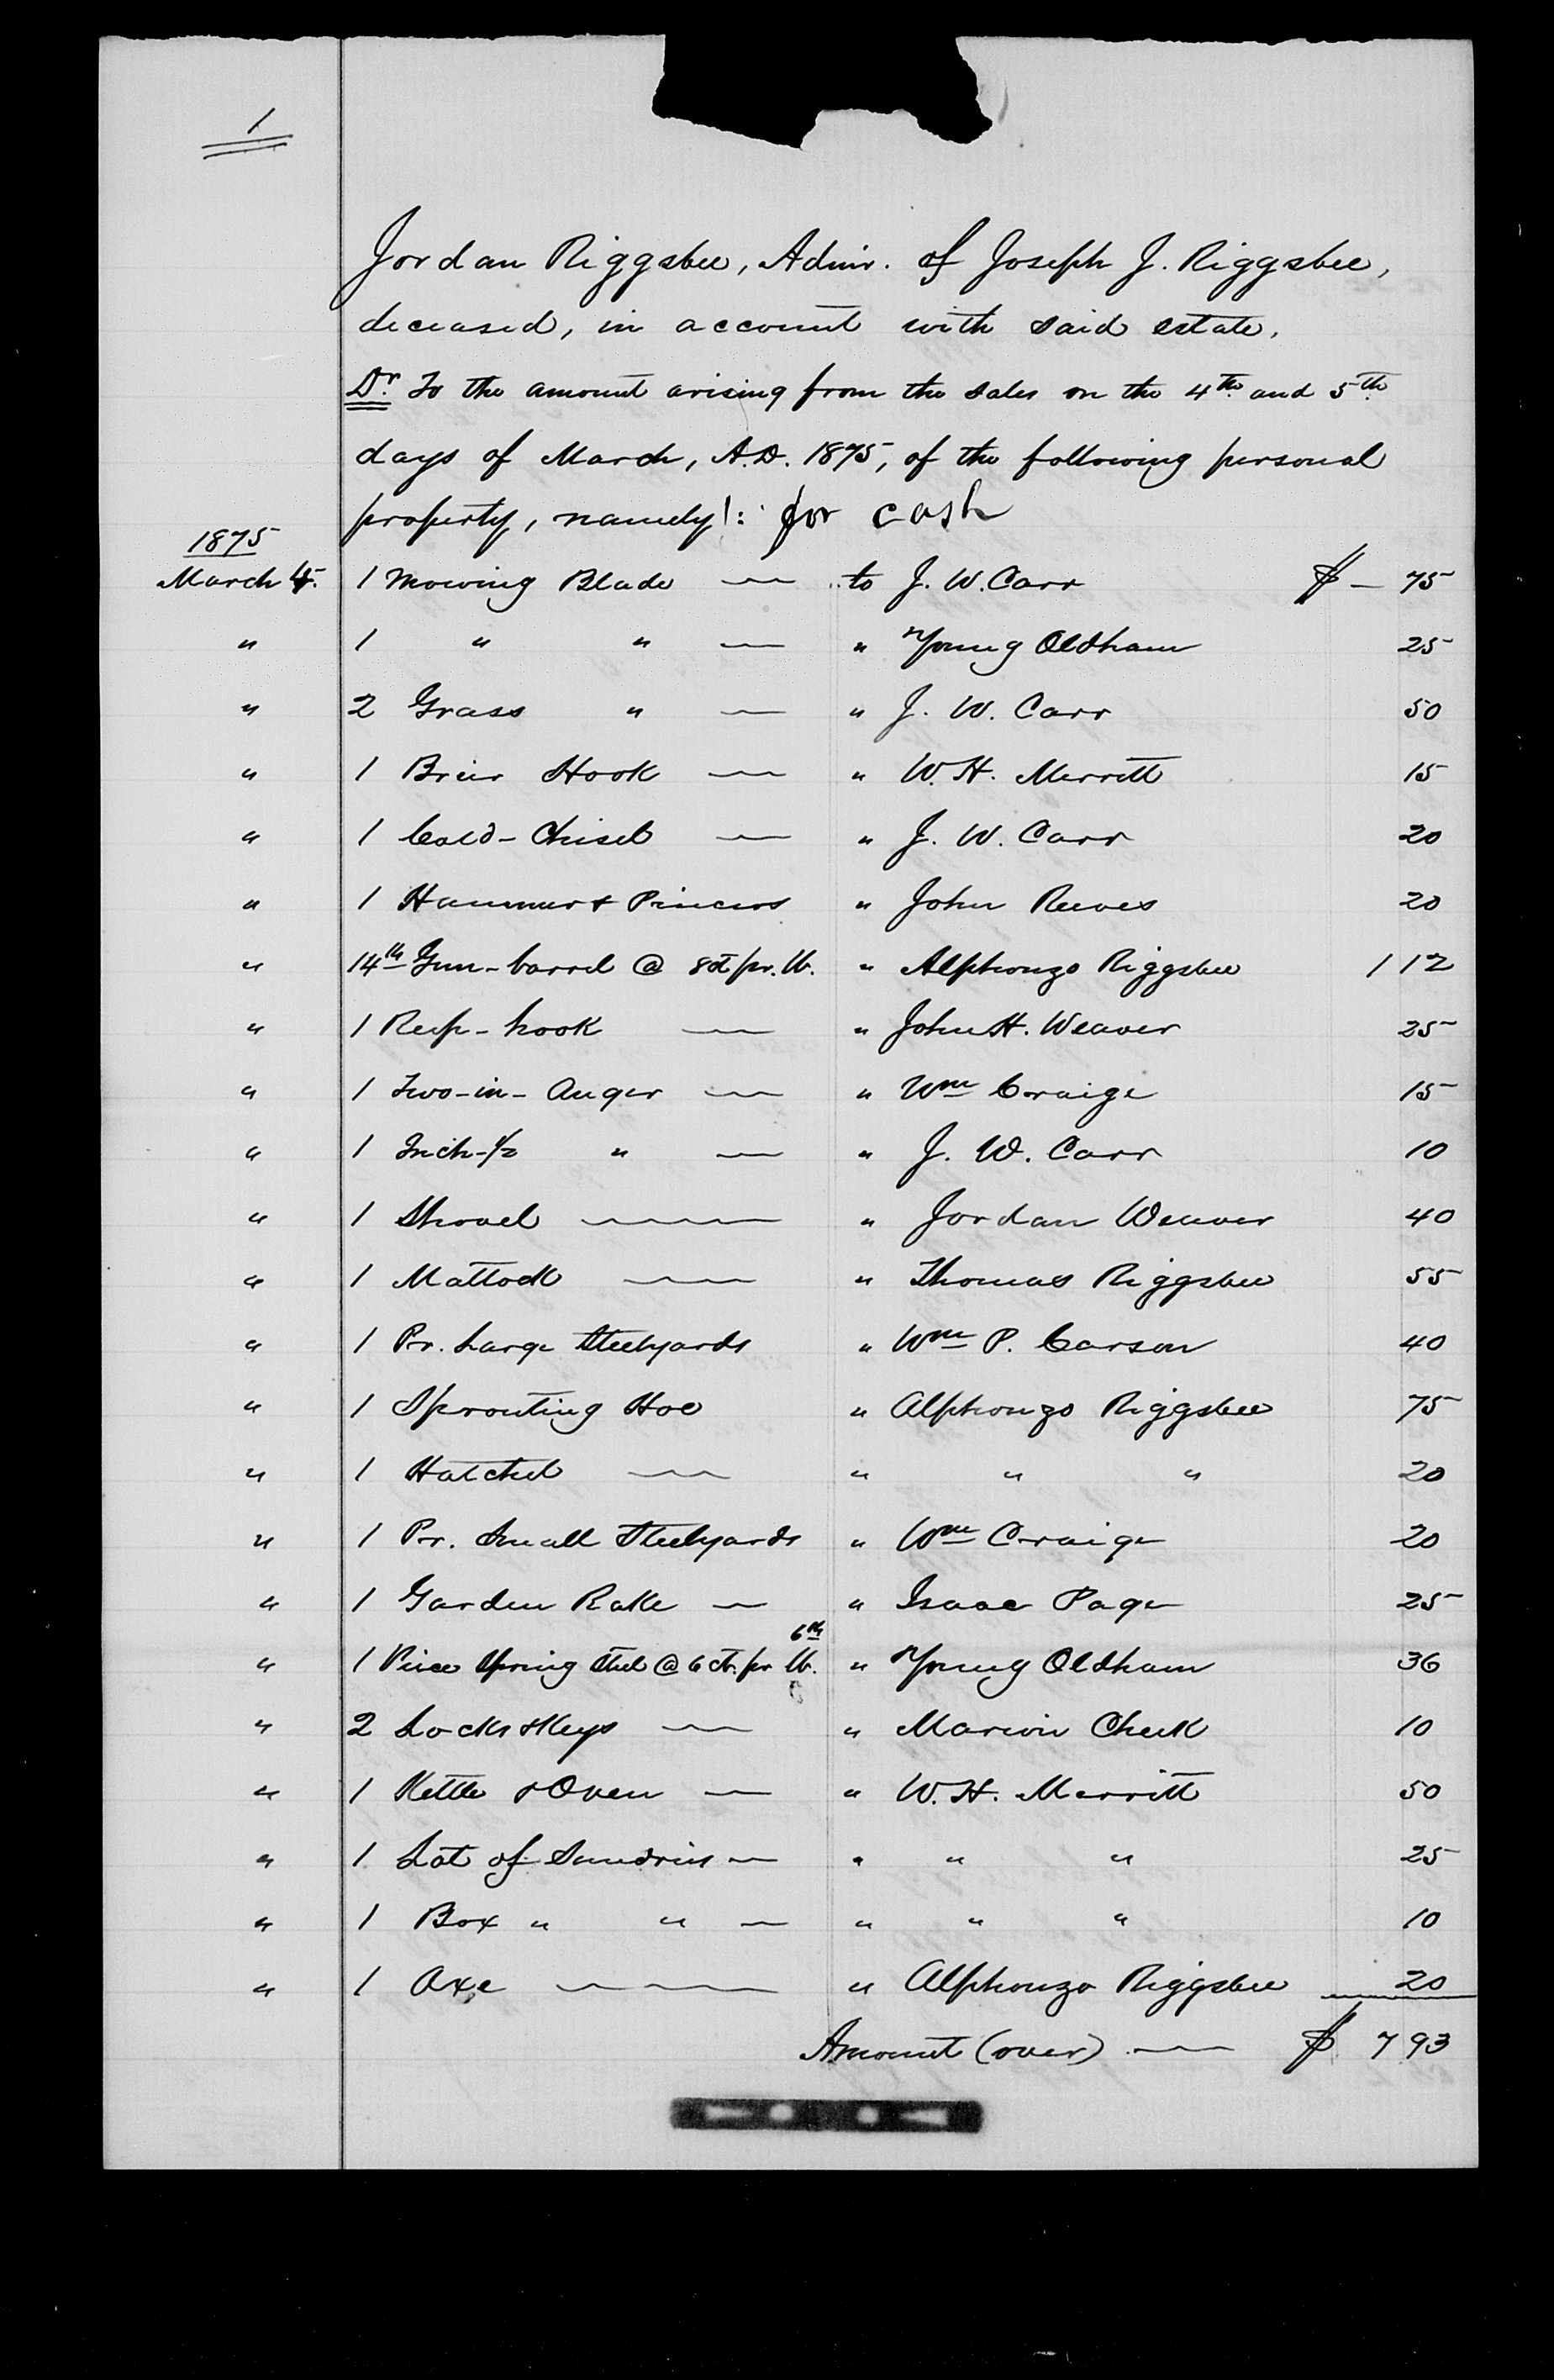 1
Jordan Riggsbee, Admr. of Joseph J. Riggsbee,
deceased, in account with said estate.
Dr. To the amount arising from the sales on the 4th and 5th
days of March, A.D. 1875, of the following personal
property, namely: for cash
1875
March 4. 1 Mowing Blade — to J. W. Carr $ — 75
" 1 " " — " Young Oldham 25
" 2 Grass " — " J. W. Carr 50
" 1 Brier Hook — " W. H. Merritt 15
" 1 Cold-Chisel — " J. W. Carr 20
" 1 Hammer & Pincers " John Reeves 20
" 14 lb Gun-barrel @ 8ct pr. lb. " Alphonzo Riggsbee 1 12
" 1 Reap-hook — " John H. Weaver 25
" 1 Two-in-Auger — " Wm Craige 15
" 1 Inch-1/2 " — " J. W. Carr 10
" 1 Shovel — " Jordan Weaver 40
" 1 Mattock — " Thomas Riggsbee 55
" 1 Pr. Large Steelyards " Wm P. Carson 40
" 1 Sprouting Hoe " Alphonzo Riggsbee 75
" 1 Hatchel — " " " 20
" 1 Pr. Small Steelyards " Wm Craige 20
" 1 Garden Rake — " Isaac Page 25
6 lb
" 1 Piece Spring Steel @ 6 ct. pr lb. " Young Oldham 36
" 2 Locks & Keys — " Marion Cheek 10
" 1 Kettle & Oven — " W. H. Merritt 50
" 1 Lot of Sundries — " " " 25
" 1 Box " " — " " " 10
" 1 Axe — " Alphonzo Riggsbee 20
Amount (over) — $ 7 93